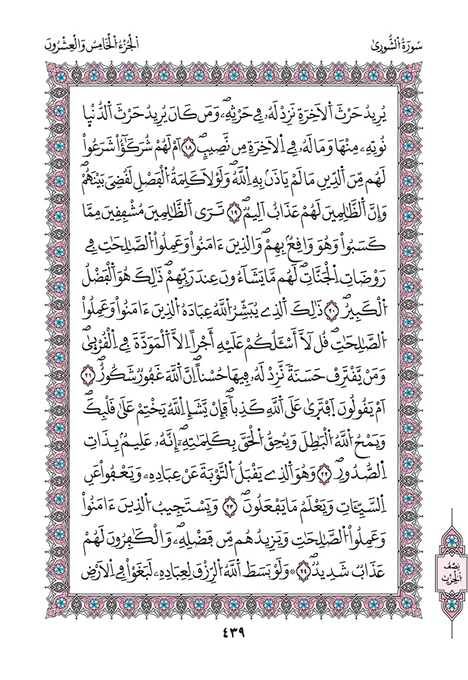 سُورَةُ الشُّورىٰ
الْجُزْءُ الْخَامِسُ وَالْعِشْرُونَ
يُرِيدُ حَرْثَ اَلَاخِرَةِ نَزِدْ لَهُۥ فِے حَرْثِهِۦۖ وَمَن كَانَ يُرِيدُ حَرْثَ اَلدُّنْيٰا
نُوتِهِۦ مِنْهَا وَمَا لَهُۥ فِے اِلَاخِرَةِ مِن نَّصِيبٍۖ ١٨ اَمْ لَهُمْ شُرَكَٰٓؤُاْ شَرَعُواْ
لَهُم مِّنَ اَلدِّينِ مَا لَمْ يَاذَنۢ بِهِ اِللَّهُۖ وَلَوْلَا كَلِمَةُ اُلْفَصْلِ لَقُضِيَ بَيْنَهُمْۖ
وَإِنَّ اَلظَّٰلِمِينَ لَهُمْ عَذَابٌ اَلِيمٌۖ ١٩ تَرَى اَلظَّٰلِمِينَ مُشْفِقِينَ مِمَّا
كَسَبُواْ وَهُوَ وَاقِعُۢ بِهِمْۖ وَالذِينَ ءَامَنُواْ وَعَمِلُواْ اُلصَّٰلِحَٰتِ فِے
رَوْضَاتِ اِلْجَنَّاتِۖ لَهُم مَّا يَشَآءُونَ عِندَ رَبِّهِمْۖ ذَٰلِكَ هُوَ اَلْفَضْلُ
اُلْكَبِيرُۖ ٢٠ ذَٰلِكَ اَلذِے يُبَشِّرُ اُللَّهُ عِبَادَهُ اُلذِينَ ءَامَنُواْ وَعَمِلُواْ
اُلصَّٰلِحَٰتِۖ قُل لَّآ أَسْـَٔلُكُمْ عَلَيْهِ أَجْراً اِلَّا اَلْمَوَدَّةَ فِے اِلْقُرْبٰيۖ
وَمَنْ يَّقْتَرِفْ حَسَنَةً نَّزِدْ لَهُۥ فِيهَا حُسْناًۖ اِنَّ اَللَّهَ غَفُورٌ شَكُورٌۖ ٢١
اَمْ يَقُولُونَ اَفْتَر۪يٰ عَلَى اَللَّهِ كَذِباًۖ فَإِنْ يَّشَإِ اِللَّهُ يَخْتِمْ عَلَيٰ قَلْبِكَۖ
وَيَمْحُ اُللَّهُ اُلْبَٰطِلَ وَيُحِقُّ اُلْحَقَّ بِكَلِمَٰتِهِۦٓۖ إِنَّهُۥ عَلِيمُۢ بِذَاتِ
اِلصُّدُورِۖ ٢٢ وَهُوَ اَلذِے يَقْبَلُ اُلتَّوْبَةَ عَنْ عِبَادِهِۦ وَيَعْفُواْ عَنِ
اِلسَّيِّـَٔاتِ وَيَعْلَمُ مَا يَفْعَلُونَۖ ٢٣ وَيَسْتَجِيبُ اُلذِينَ ءَامَنُواْ
وَعَمِلُواْ اُلصَّٰلِحَٰتِ وَيَزِيدُهُم مِّن فَضْلِهِۦۖ وَالْكَٰفِرُونَ لَهُمْ
عَذَابٌ شَدِيدٌۖ ٢٤ وَلَوْ بَسَطَ اَللَّهُ اُلرِّزْقَ لِعِبَادِهِۦ لَبَغَوْاْ فِے اِلَارْضِ
نِصْف
الْحِزْب
٤٣٩